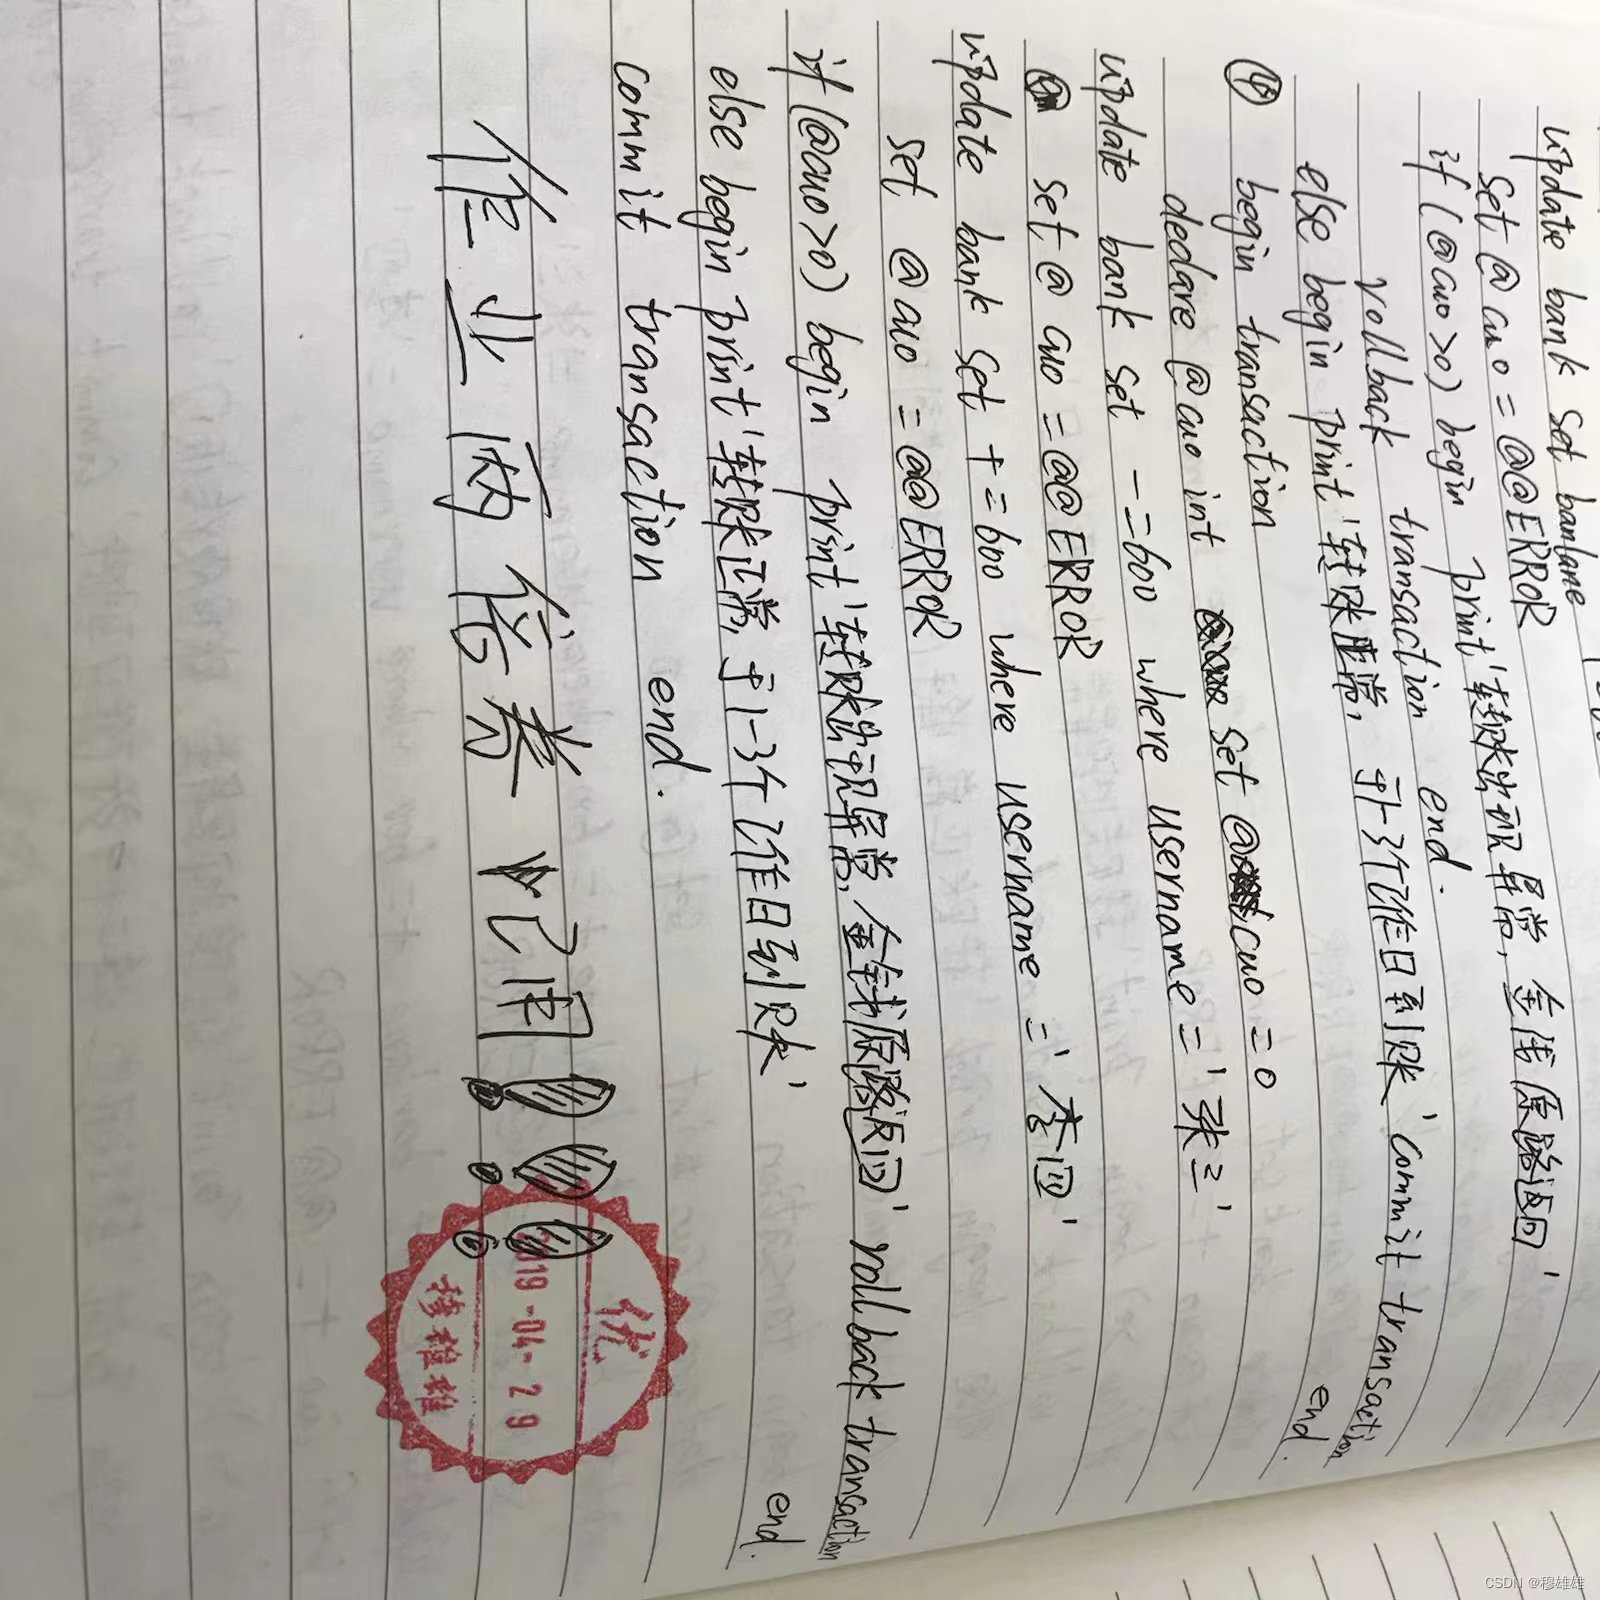 update bank set
set @cuo = @@ERROR
if (@cuo>0) begin print '转账出现异常, 金钱原路返回'
rollback transaction end.
else begin print '转账正常, 于1-3个工作日到账' commit transaction
end.
④ begin transaction
declare @cuo int set @cuo = 0
update bank set -=600 where username = '张三'
set @cuo = @@ERROR
update bank set +=600 where username = '李四'
set @cuo = @@ERROR
if (@cuo>0) begin print '转账出现异常, 金钱原路返回' rollback transaction
end.
else begin print '转账正常, 于1-3个工作日到账'
commit transaction end.
作业两倍卷 忆用!!!
优
2019-04-29
穆雄雄
CSDN @穆雄雄